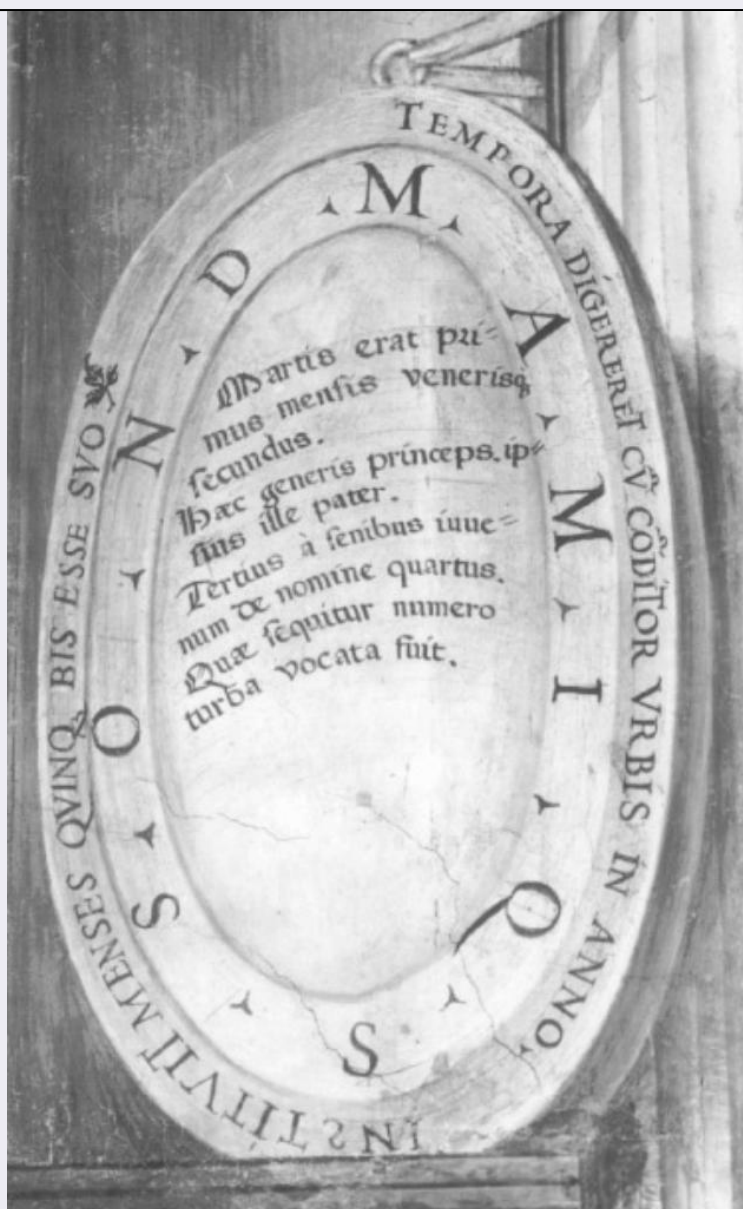 TEMPORA DIGERERET CV̄ CŌDITOR VRBIS IN ANNO,
INSTITVIT MENSES QVINQ BIS ESSE SVO
M A M I Q S S O N D
Martis erat pri=
mus mensis venerisq
secundus.
Hæc generis princeps. ip=
sius ille pater.
Tertius à senibus iuue=
num de nomine quartus.
Quæ sequitur numero
turba vocata fuit.